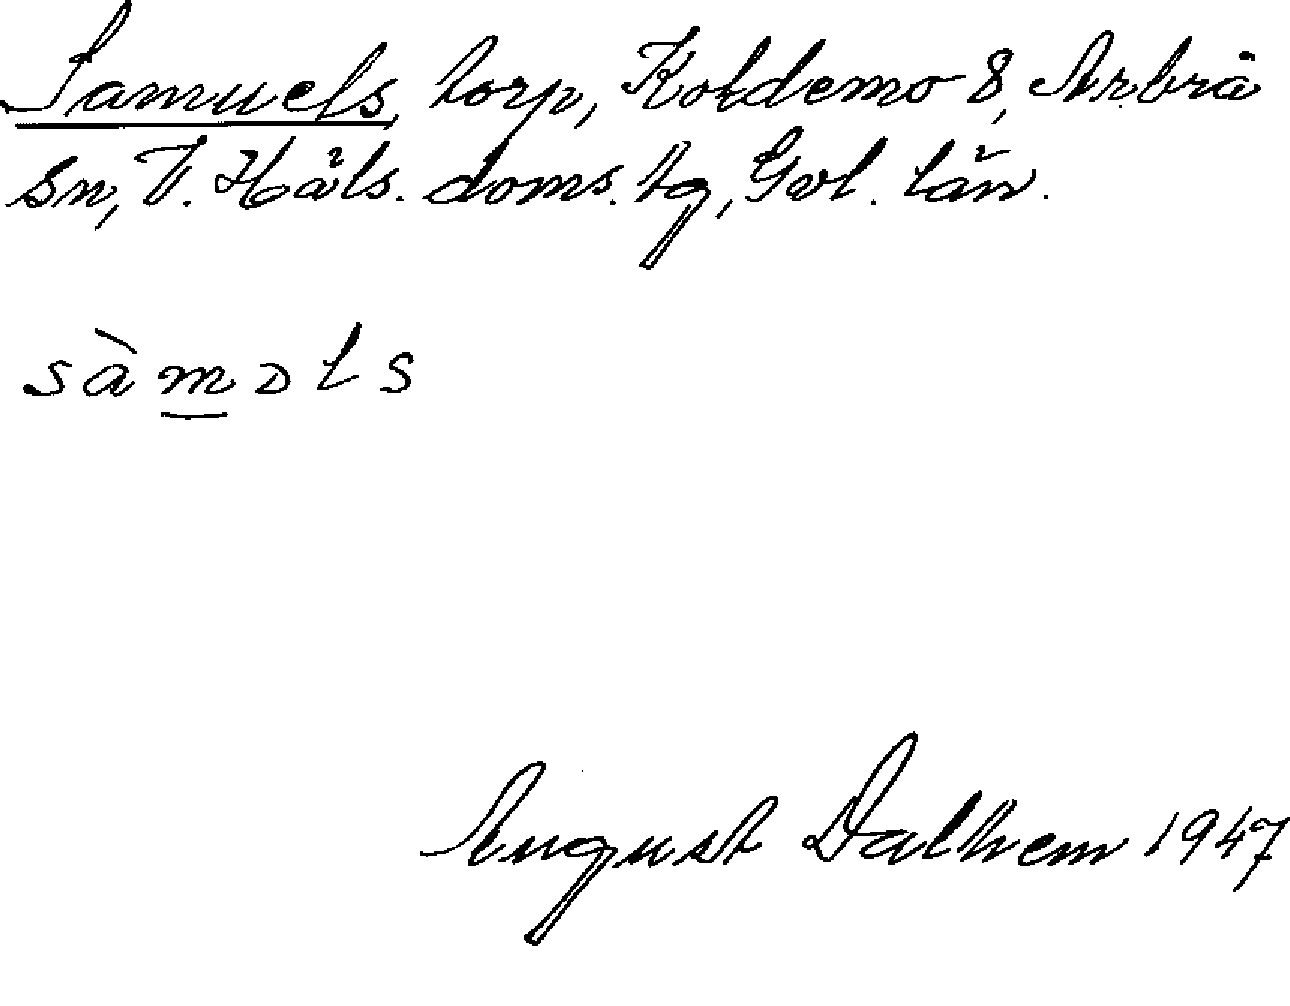 Samuels, torp, Koldemo 8, Arbrå
sn, V. Häls. doms. tg, Gvl. län.
sàmɔls
August Dalhem 1947